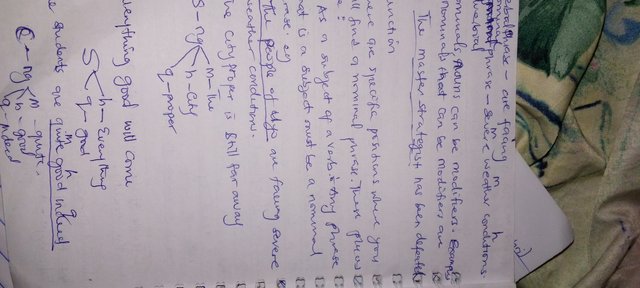 verbal phrase - are facing m h
nominal phrase - severe weather conditions.
Nominals / Nouns can be modifiers. Example
nominals that can be modifiers are
The master strategist has been defeated
unction
here are specific positions where you
ill find a nominal phrase. These places
As a subject of a verb: Any phrase
hat is a subject must be a nominal
rase. eg
The people of are facing severe
weather conditions.
The city proper is still far away
S - ng m - the
h - city
q - proper
verything good will come
S h - Everything
q - good
m h q
e students are quite good indeed
C - ng m - quite
h - good
q - indeed